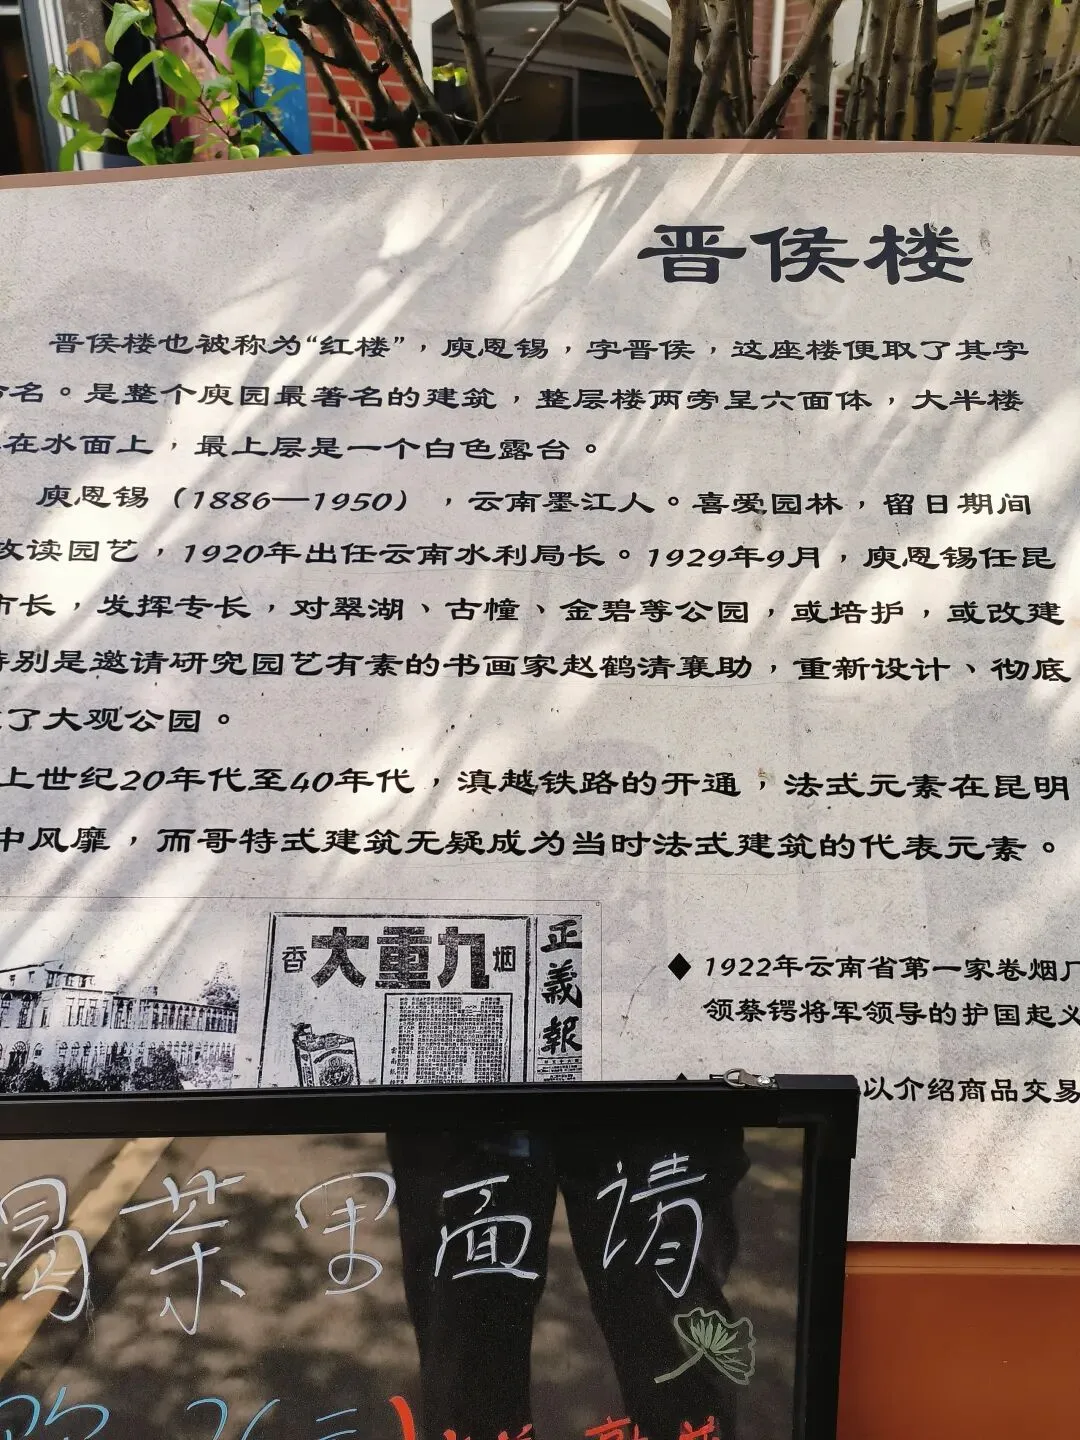 晋侯楼
晋侯楼也被称为“红楼”，庾恩锡，字晋侯，这座楼便取了其字
命名。是整个庾园最著名的建筑，整层楼两旁呈六面体，大半楼
在水面上，最上层是一个白色露台。
庾恩锡（1886—1950），云南墨江人。喜爱园林，留日期间
攻读园艺，1920年出任云南水利局长。1929年9月，庾恩锡任昆
市长，发挥专长，对翠湖、古幢、金碧等公园，或培护，或改建
特别是邀请研究园艺有素的书画家赵鹤清襄助，重新设计、彻底
了大观公园。
上世纪20年代至40年代，滇越铁路的开通，法式元素在昆明
中风靡，而哥特式建筑无疑成为当时法式建筑的代表元素。
香大重九烟
正義報
◆ 1922年云南省第一家卷烟厂
领蔡锷将军领导的护国起义
以介绍商品交易
喝茶里面请